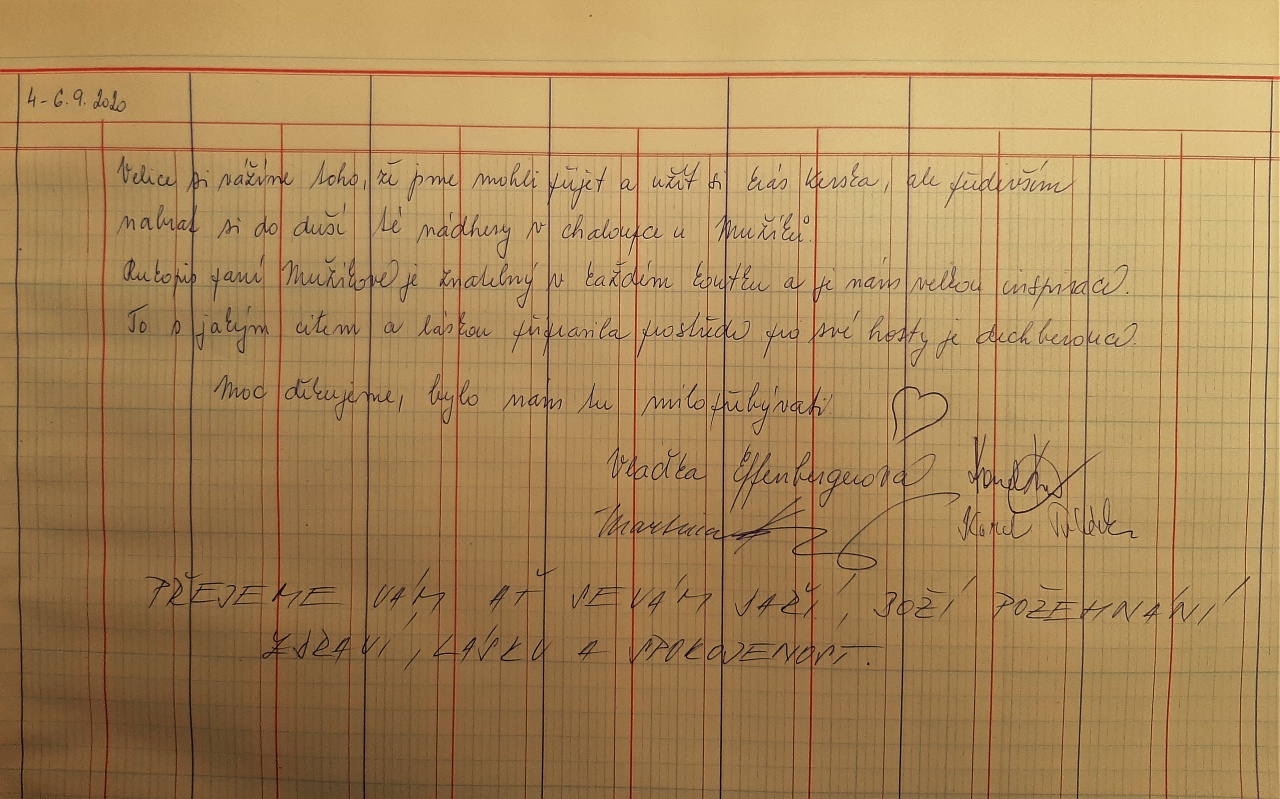 4-6.9.2020
Velice si vážíme toho, že jsme mohli přijet a užít si krás Kerska, ale především
nabrat si do duší té nádhery v chaloupce u Mužíků.
Rukopis paní Mužíkové je znatelný v každém koutku a je nám velkou inspirací.
To s jakým citem a láskou připravila prostředí pro své hosty je dechberoucí.
Moc děkujeme, bylo nám tu milo přebývati
Vlaďka Effenbergerová
Martina
Karel
PŘEJEME VÁM AŤ SE VÁM DAŘÍ, BOŽÍ POŽEHNÁNÍ
ZDRAVÍ, LÁSKU A SPOKOJENOST.